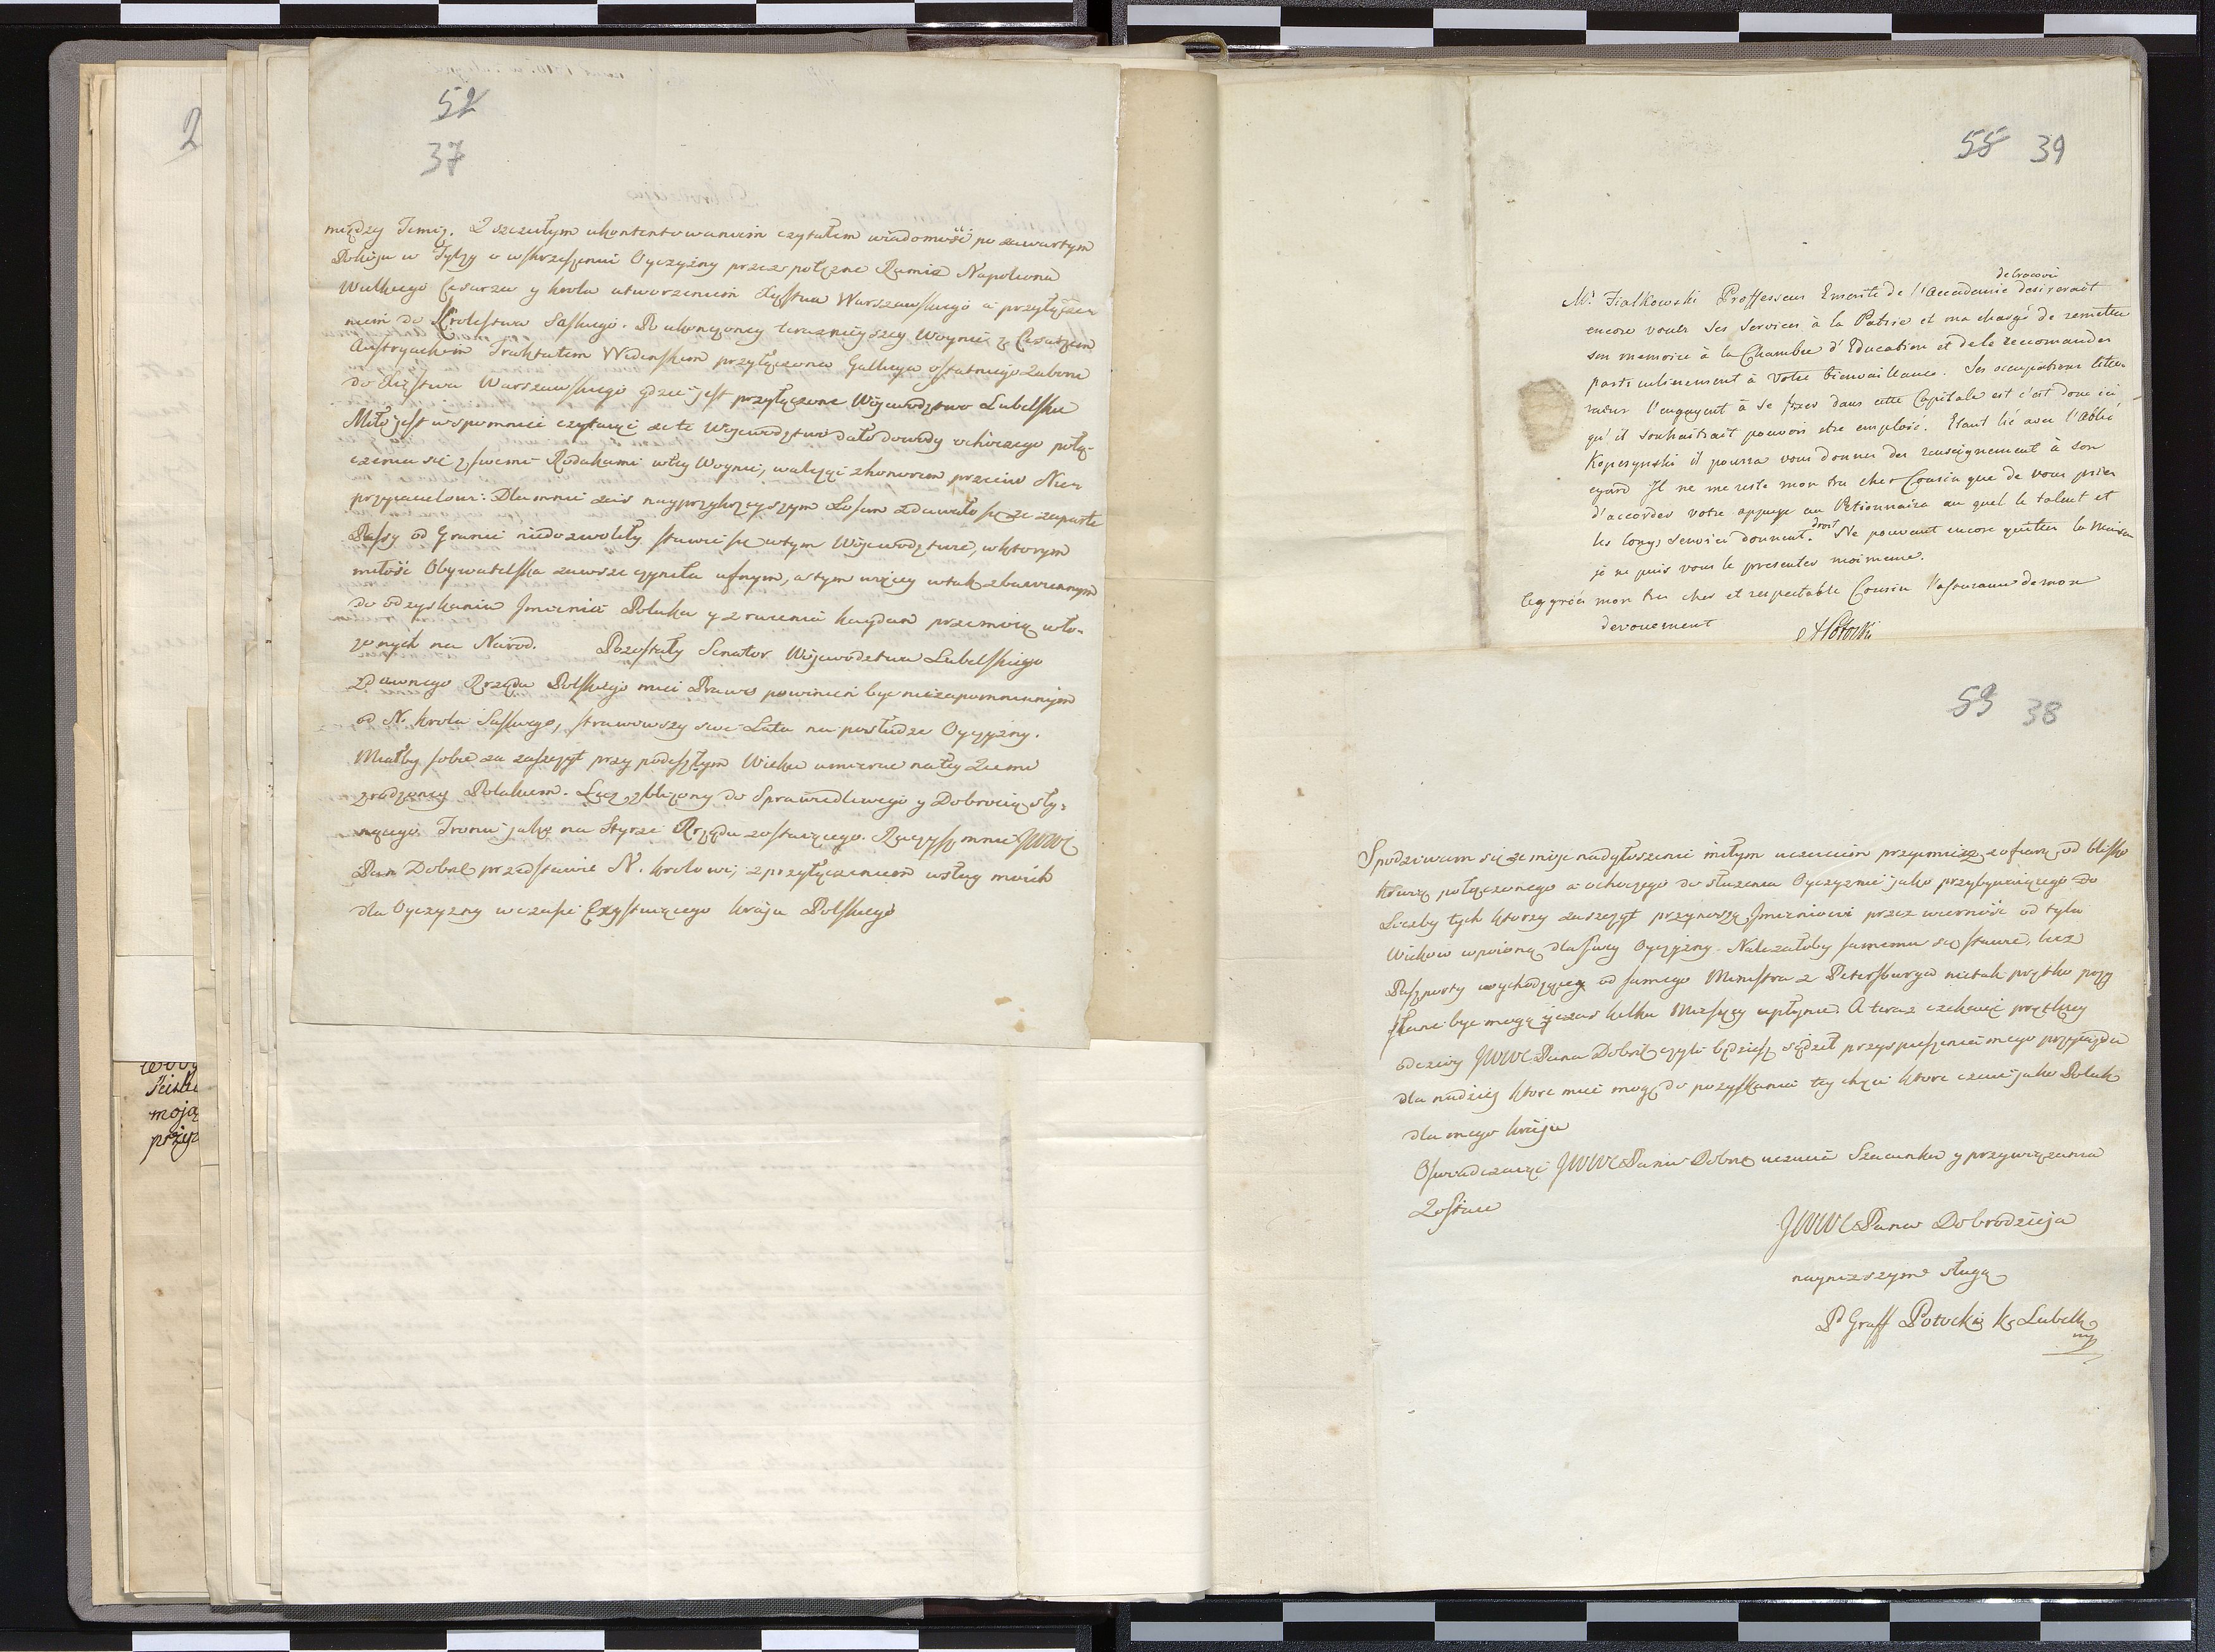 52
37
między Temiż. Z szczułym ukontentowaniem czytałem wiadomość po zawartym
Pokóju w Tylży o wskrzeszenii Oyczyżny przez potężne Ramie Napoleona
Wielkiego Cesarza y krola utworzeniem Xięstwa Warszawskiego a przyłącze-
niem do Krolestwa Saskiego. Po ukonczoney terazniejszey Woynie z Cesarzem
Austryackim Traktatem Widenskim przyłączona Gallicya ostatniego Zaboru
do Xięstwa Warszawskiego gdzie jest przyłączone Wojewodztwo Lubelskie
Miło jest wspomniec czytaiąc że te Wojewodztwo dało dowody ochoczego połą-
czenia się z swemi Rodakami w tey Woynie, walcząc z honorem przeciw Nie-
przyjacielowi: Dla mnie zaś nayprzykrzejszym Losem zdawało się że zaparte
Passy od Granic niedozwoliły stawić się w tym Wojewodztwie, w ktorym
miłość Obywatelska zawsze czyniła ufnym, a tym więcey w tak zbawiennym
do odzyskania Jmienia Polaka y zrucenia kaydan przemocą wło-
żonych na Narod. Pozostały Senator Wojewodztwa Lubelskiego
z dawnego Rządu Polskiego mieć Prawo powinien byc niezapomnianym
od N. krola Saskiego, strawiwszy swe Lata na posłudze Oyczyzny.
Miałby sobie za zaszczyt przy podeszłym Wieku umierac na tey Ziemi
zrodzoney Polakiem. Lecz zbliżony do Sprawiedliwego y Dobrocią sły-
nącego Tronu jako na Styrze Rządu zostaiącego. Raczysz mnie JWWC
Pan Dobrz przedstawic N. krolowi, z przyłączeniem usług moich
dla Oyczyzny w czasie Exystuiącego kraju Polskiego
2
moją
55 39
de Cracovie
Mr Fialkowski Proffesseur Emerite de l'Accademie desirerait
encore vouer ses services à la Patrie et ma chargé de remettre
son memoire à la Chambre d'Education et de le reccomander
particulierement à Votre bienvaillance. Ses occupations litte-
raires l'engagent à se fixer dans cette Capitale et c'est donc ici
qu'il souhaitrait pouvoir etre emploié. Etant lié avec l'Abbé
Kopczynski il pourra vous donner des renseignement à son
egard Il ne me reste mon tres cher Cousin que de vous prier
d'accorder votre appuye au Petionnaire au quel le talent et
droit
les longs services donnent. Ne pouvant encore quitter la Maison
je ne puis vous le presenter moimeme.
Aggréés mon tres cher et respectable Cousin l'assurance de mon
devouement
Potocki
53 38
Spodziewam się że moje nadgłoszenie miłym uczuciem przyimiesz zofiarą od blisko
krwią połączonego a ochoczego do służenia Oyczyznie jako przybywaiącego do
Liczby tych ktorzy zaszczyt przynoszą Jmieniowi przez wiernośc od tylu
Wiekow wpoioną dla swey Oyczyzny. Należałoby samemu się stawic, lecz
Paszporty wychodzące od samego Ministra z Petersburga nietak prętko przy-
słane byc mogą y czas kilku Miesięcy upłynie. A teraz czekaiąc prętkiey
odezwy JWWC Pana Dobrz czyli będziesz sądził przyspieszenia mego przyjazdu
dla nadziei ktore miec mogę do pozyskania tey chęci ktore czuie jako Polak
dla mego kraju
Oswiadczaiąc JWWC Panu Dobrz uczucia Szacunku y przywiązania
Zostaie
JWWC Pana Dobrodzieja
nayniższym sługą
Graff Potocki K Lubelk
mp